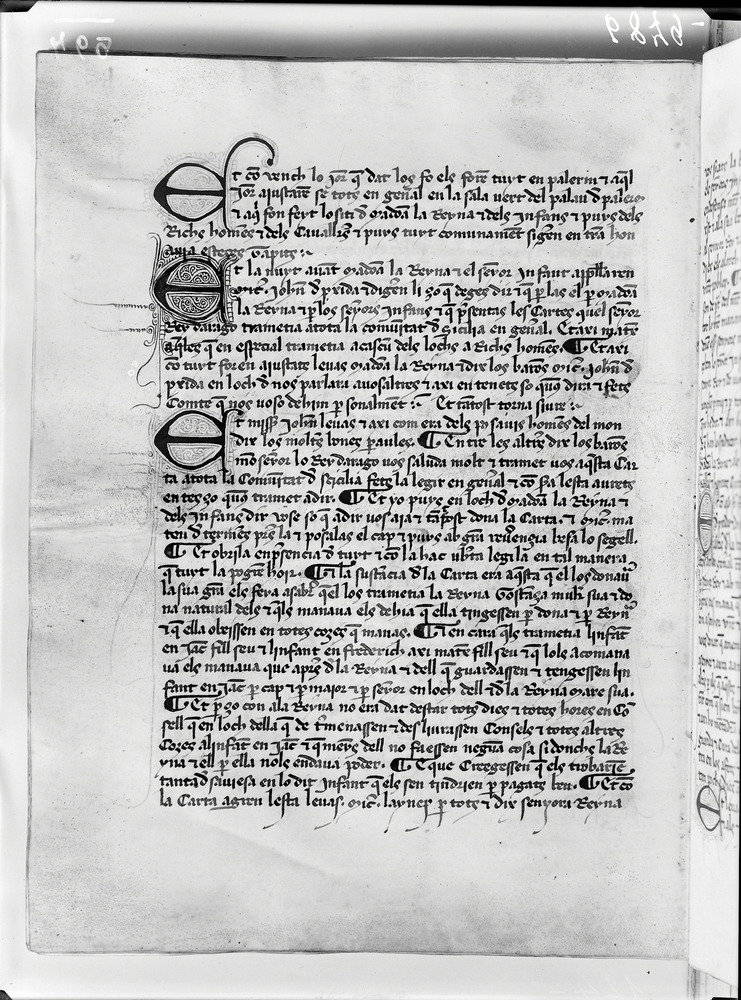 Et cō vench lo jor q̄ dat los fo els forē tuyt en palerm ⁊ aq̄l
Jor aiustarē se tots en gen̄al en la sala vert del palau d̄ palerm
⁊ aq̄ fon feyt lo siti d̄ madōa la Reyna ⁊ dels Infans ⁊ puys dels
Richs homēs ⁊ dels Cauallr̄s ⁊ puys tuyt comunamēt sigren en tr̄a hon
auia esteses tapits
Et la nuyt auāt madōa la Reyna ⁊ el seyor Infant appllaren
mic̄. Joh̄n d̄ pxida ⁊ digren li ço q̄ deges dir ⁊ q̄ p̄ las el p̄ madōa
la Reyna ⁊ p̄ los seyors Infans ⁊ q̄ p̄sentas les Cartes quel seyor
Rey darago trametia a tota la comuītat d̄ Sicilia en gen̄al. Et axi matex
aq̄lles q̄ en especial trametia a cascū dels lochs a Richs homēs. ¶ Et axi
cō tuyt foren aiustats leuas madōa la Reyna ⁊ dix los barōs mic̄. Joh̄n d̄
pxida en loch d̄ nos parlara a vosaltres ⁊ axi entenets so quō dira ⁊ fets
Comte q̄ nos vos o dehim p̄sonalmēt Et tātost torna siure
Et miss̄ Joh̄n leuas ⁊ axi com era dels pº sauis homēs del mon
dix los moltes bones paules. ¶ Entre les altrēs dix los barōs
mō seyor lo Rey darago vos saluda molt ⁊ tramet vos aq̄sta Car
ta a tota la Comūitat d̄ Scicilia fets la legir en gen̄al ⁊ cō ha lesta aurets
entes ço quō tramet a dir. ¶ Et yo puys en loch d̄ madōa la Reyna ⁊
dels Infans dir vos e so q̄ a dir vos aia ⁊ tāpost dona la Carta. ⁊ mic̄. ma
teu d̄ termēs p̄s la ⁊ posalas el cap ⁊ puys ab grā reuerēgia besa lo segell.
¶ Et obrila en p̄sencia d̄ tuyt ⁊ cō la hac vb̄ta legi la en tal manera
q̄ tuyt la pogrē hoir. ¶ ⁊ la sustācia d̄ la Carta era aq̄sta q̄ el los donaū
la sua grā els feya asab̄r q̄el los trametia la Reyna Gostāça mulr̄ sua ⁊ do
na natural dels ⁊ q̄ls manaua els dehia q̄ ella tingessen p̄ dona ⁊ p̄ Reynā
⁊ q̄ ella obeissen en totes cozes q̄ manas. ¶ ⁊ en cara q̄ls trametia linfāt
en Jac̄ fill seu ⁊ linfant en frederich axi matex fill seu ⁊ q̄ lols acomana
ua els manaua que apr̄s d̄ la Reyna ⁊ dell q̄ guardassen ⁊ tengessen lin
fant en Jac̄ p̄ cap ⁊ p̄ maior ⁊ p̄ seyor en loch dell ⁊ d̄ la Reyna mare sua.
¶ Et p̄ ço con a la Reyna no era dat destar tots dies ⁊ totes hores en Cō
sell q̄ en loch della q̄ de tr̄menassen ⁊ desliurassen Consels ⁊ totes altres
Cozes al infāt en Jac̄ ⁊ q̄ meys dell no faessen negua cosa sidonchs la Re
yna ⁊ ell p̄ ella nols en daua poder. ¶ E que Creegessen q̄ els trobariē
tanta d̄ sauiesa en lo dit Infant q̄ els sen tindrien p̄ pagats ben. ¶ Et cō
la Carta agren lesta leuas. mic̄. layner p̄ tots ⁊ dix senyora Reyna